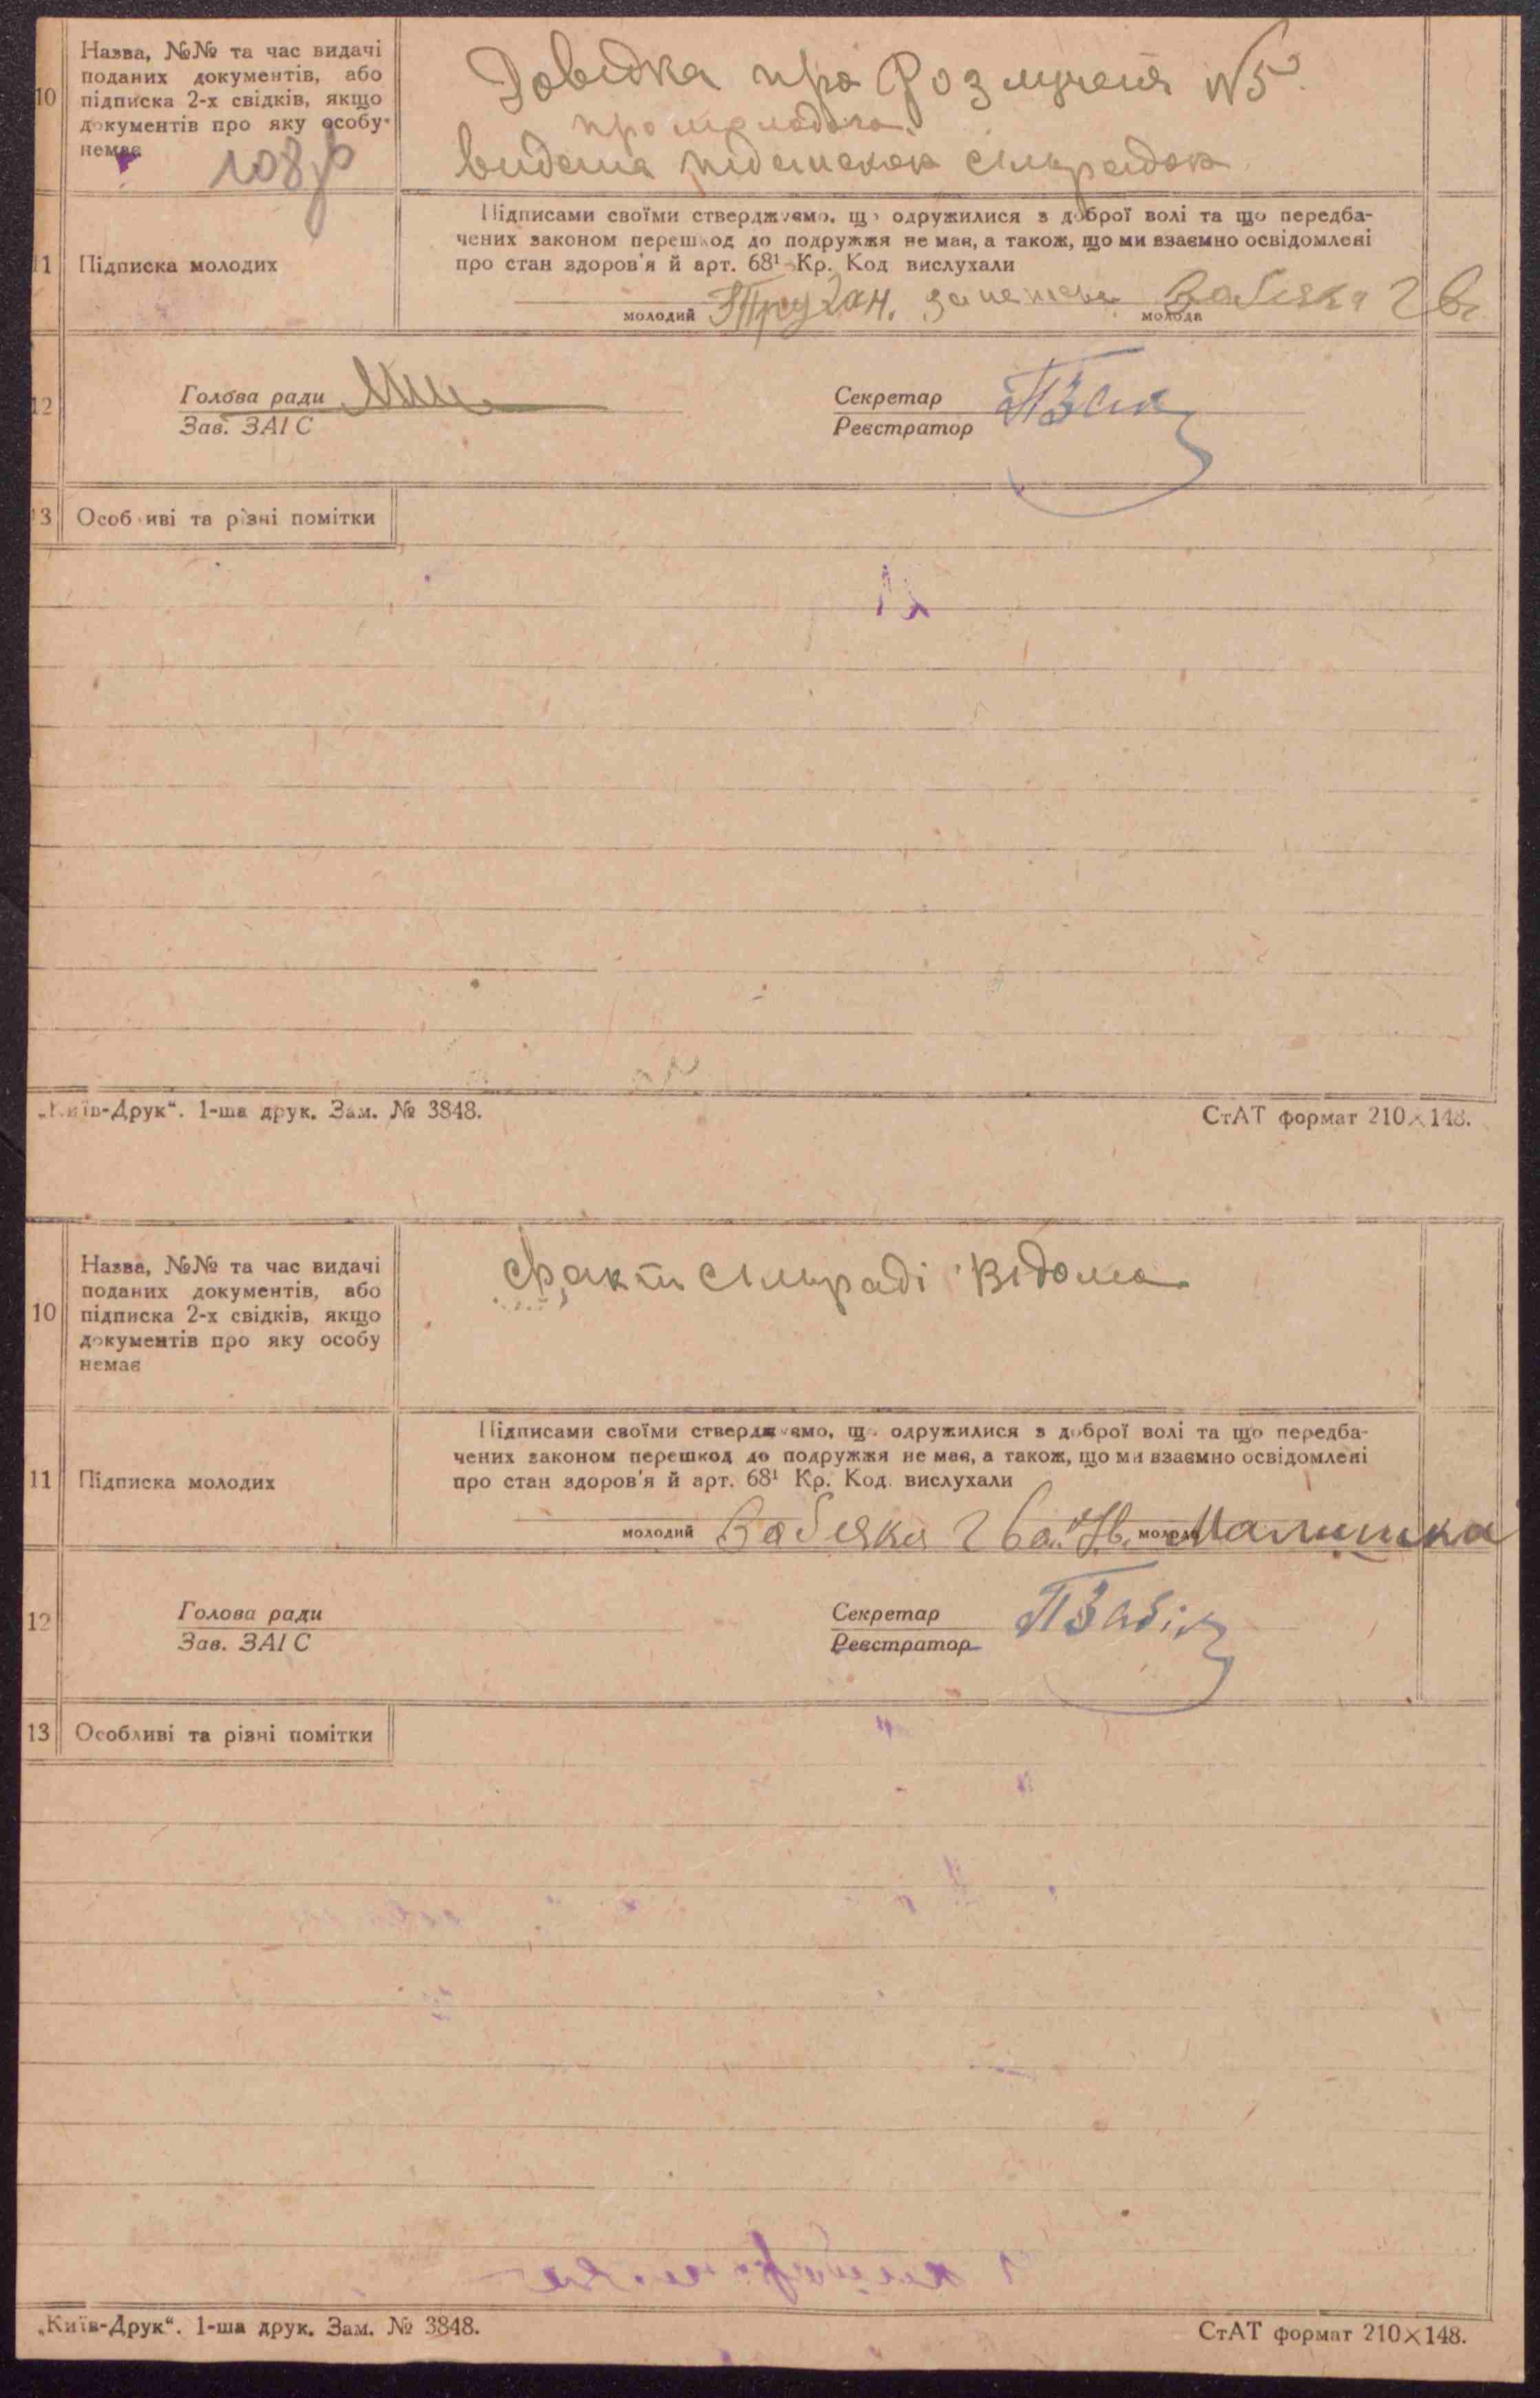 10
Назва, №№ та час видачі
поданих документів, або
підписка 2-х свідків, якщо
документів про яку особу
немає
108р
Довідка про Розлученя N5
про молодого.
видана сільрадою
11
Підписка молодих
Підписами своїми стверджуємо, що одружилися з доброї волі та що передба-
чених законом перешкод до подружжя не має, а також, що ми взаємно освідомлені
про стан здоров'я й арт. 68¹ Кр. Код вислухали
молодий
молода
12
Голова ради
Зав. ЗАГС
Секретар
Реєстратор
13
Особливі та різні помітки
„Київ-Друк“. 1-ша друк. Зам. № 3848.
СтАТ формат 210×148.
10
Назва, №№ та час видачі
поданих документів, або
підписка 2-х свідків, якщо
документів про яку особу
немає
Факти сільраді відома
11
Підписка молодих
Підписами своїми стверджуємо, що одружилися з доброї волі та що передба-
чених законом перешкод до подружжя не має, а також, що ми взаємно освідомлені
про стан здоров'я й арт. 68¹ Кр. Код. вислухали
молодий
молода Малишка
12
Голова ради
Зав. ЗАГС
Секретар
Реєстратор
13
Особливі та різні помітки
„Київ-Друк“. 1-ша друк. Зам. № 3848.
СтАТ формат 210×148.